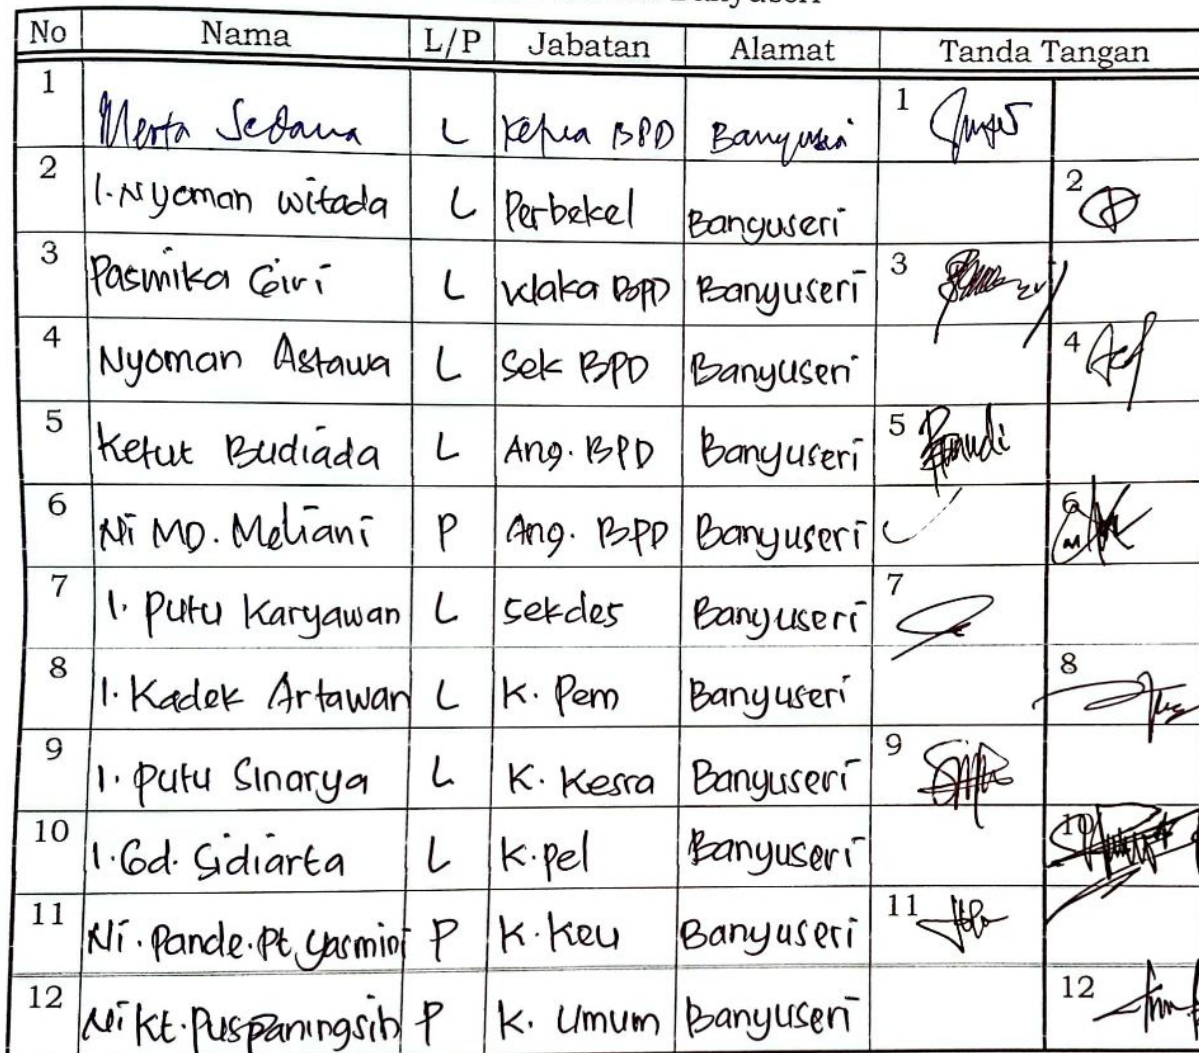 Banyuseri
No Nama L/P Jabatan Alamat Tanda Tangan
1 Merta Sedana L Ketua BPD Banyuseri 1
2 I. Nyoman witada L Perbekel Banyuseri 2
3 Pasmika Giri L Waka BPD Banyuseri 3
4 Nyoman Astawa L Sek BPD Banyuseri 4
5 Ketut Budiada L Ang. BPD Banyuseri 5
6 Ni MD. Meliani P Ang. BPD Banyuseri 6
7 I. Putu Karyawan L Sekdes Banyuseri 7
8 I. Kadek Artawan L K. Pem Banyuseri 8
9 I. Putu Sinarya L K. Kesra Banyuseri 9
10 I. Gd. Sidiarta L K. pel Banyuseri 10
11 Ni. Pande. Pt. Yasmini P K. Keu Banyuseri 11
12 Ni Kt. Puspaningsih P K. Umum Banyuseri 12